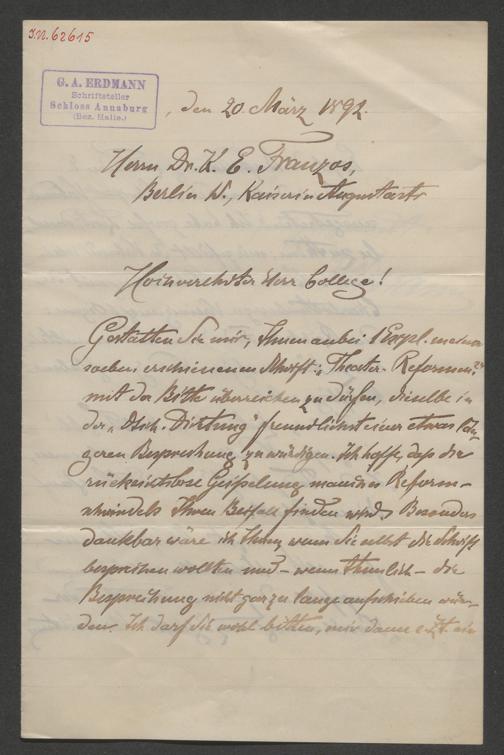 I.N. 62615
G. A. ERDMANN
Schriftsteller
Schloss Annaburg
(Bez. Halle.)
, den 20. März 1892.
Herrn Dr. K. E. Franzos,
Berlin W., Kaiserin Augustastr
Hochverehrter Herr College!
Gestatten Sie mir, Ihnen anbei 1 Expl. meiner
soeben erschienenen Schrift: „Theater-Reformen?"
mit der Bitte überreichen zu dürfen, dieselbe in
der „Dtsch. Dichtung" freundlichst einer etwas län-
geren Besprechung zu würdigen. Ich hoffe, daß die
rücksichtslose Geißelung manchen Reform-
schwindels Ihren Beifall finden wird. Besonders
dankbar wäre ich Ihnen, wenn Sie selbst die Schrift
besprechen wollten und – wenn thunlich – die
Besprechung nicht gar zu lange aufschieben wür-
den. Ich darf Sie wohl bitten, mir dann s. Zt. ein